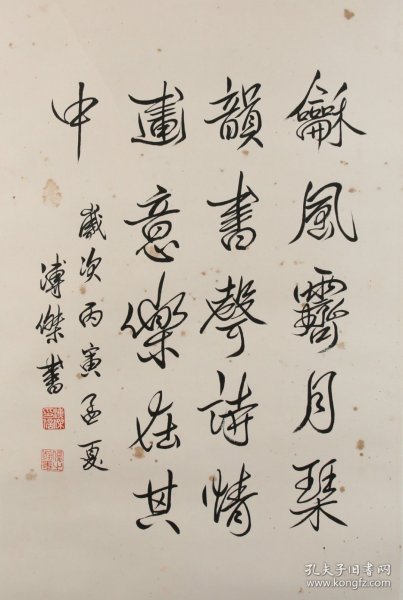 龢風霽月琹
韻書聲詩情
畫意樂在其
中
歲次丙寅孟夏
溥傑書
孔夫子旧书网
www.kongfz.com